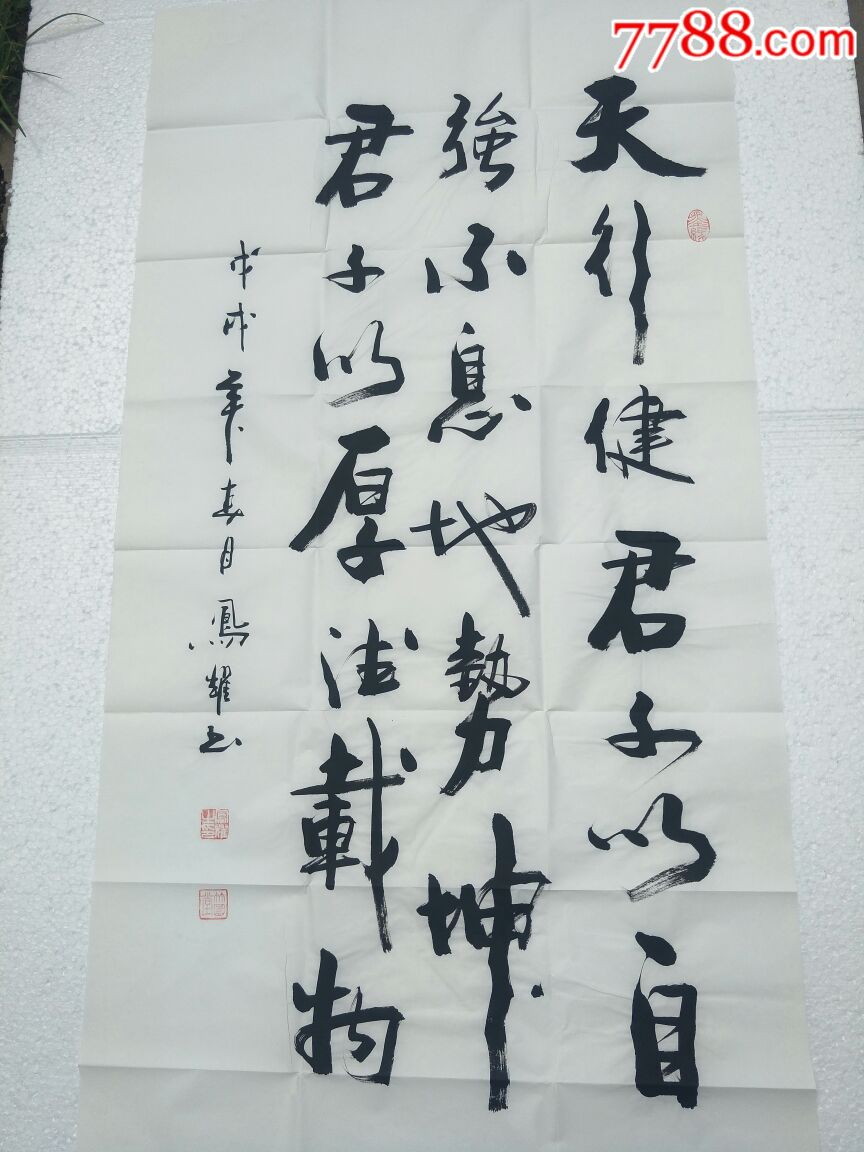 7788.com
天行健君子以自
強不息地勢坤
君子以厚德載物
戊戌年春月鳳耀书